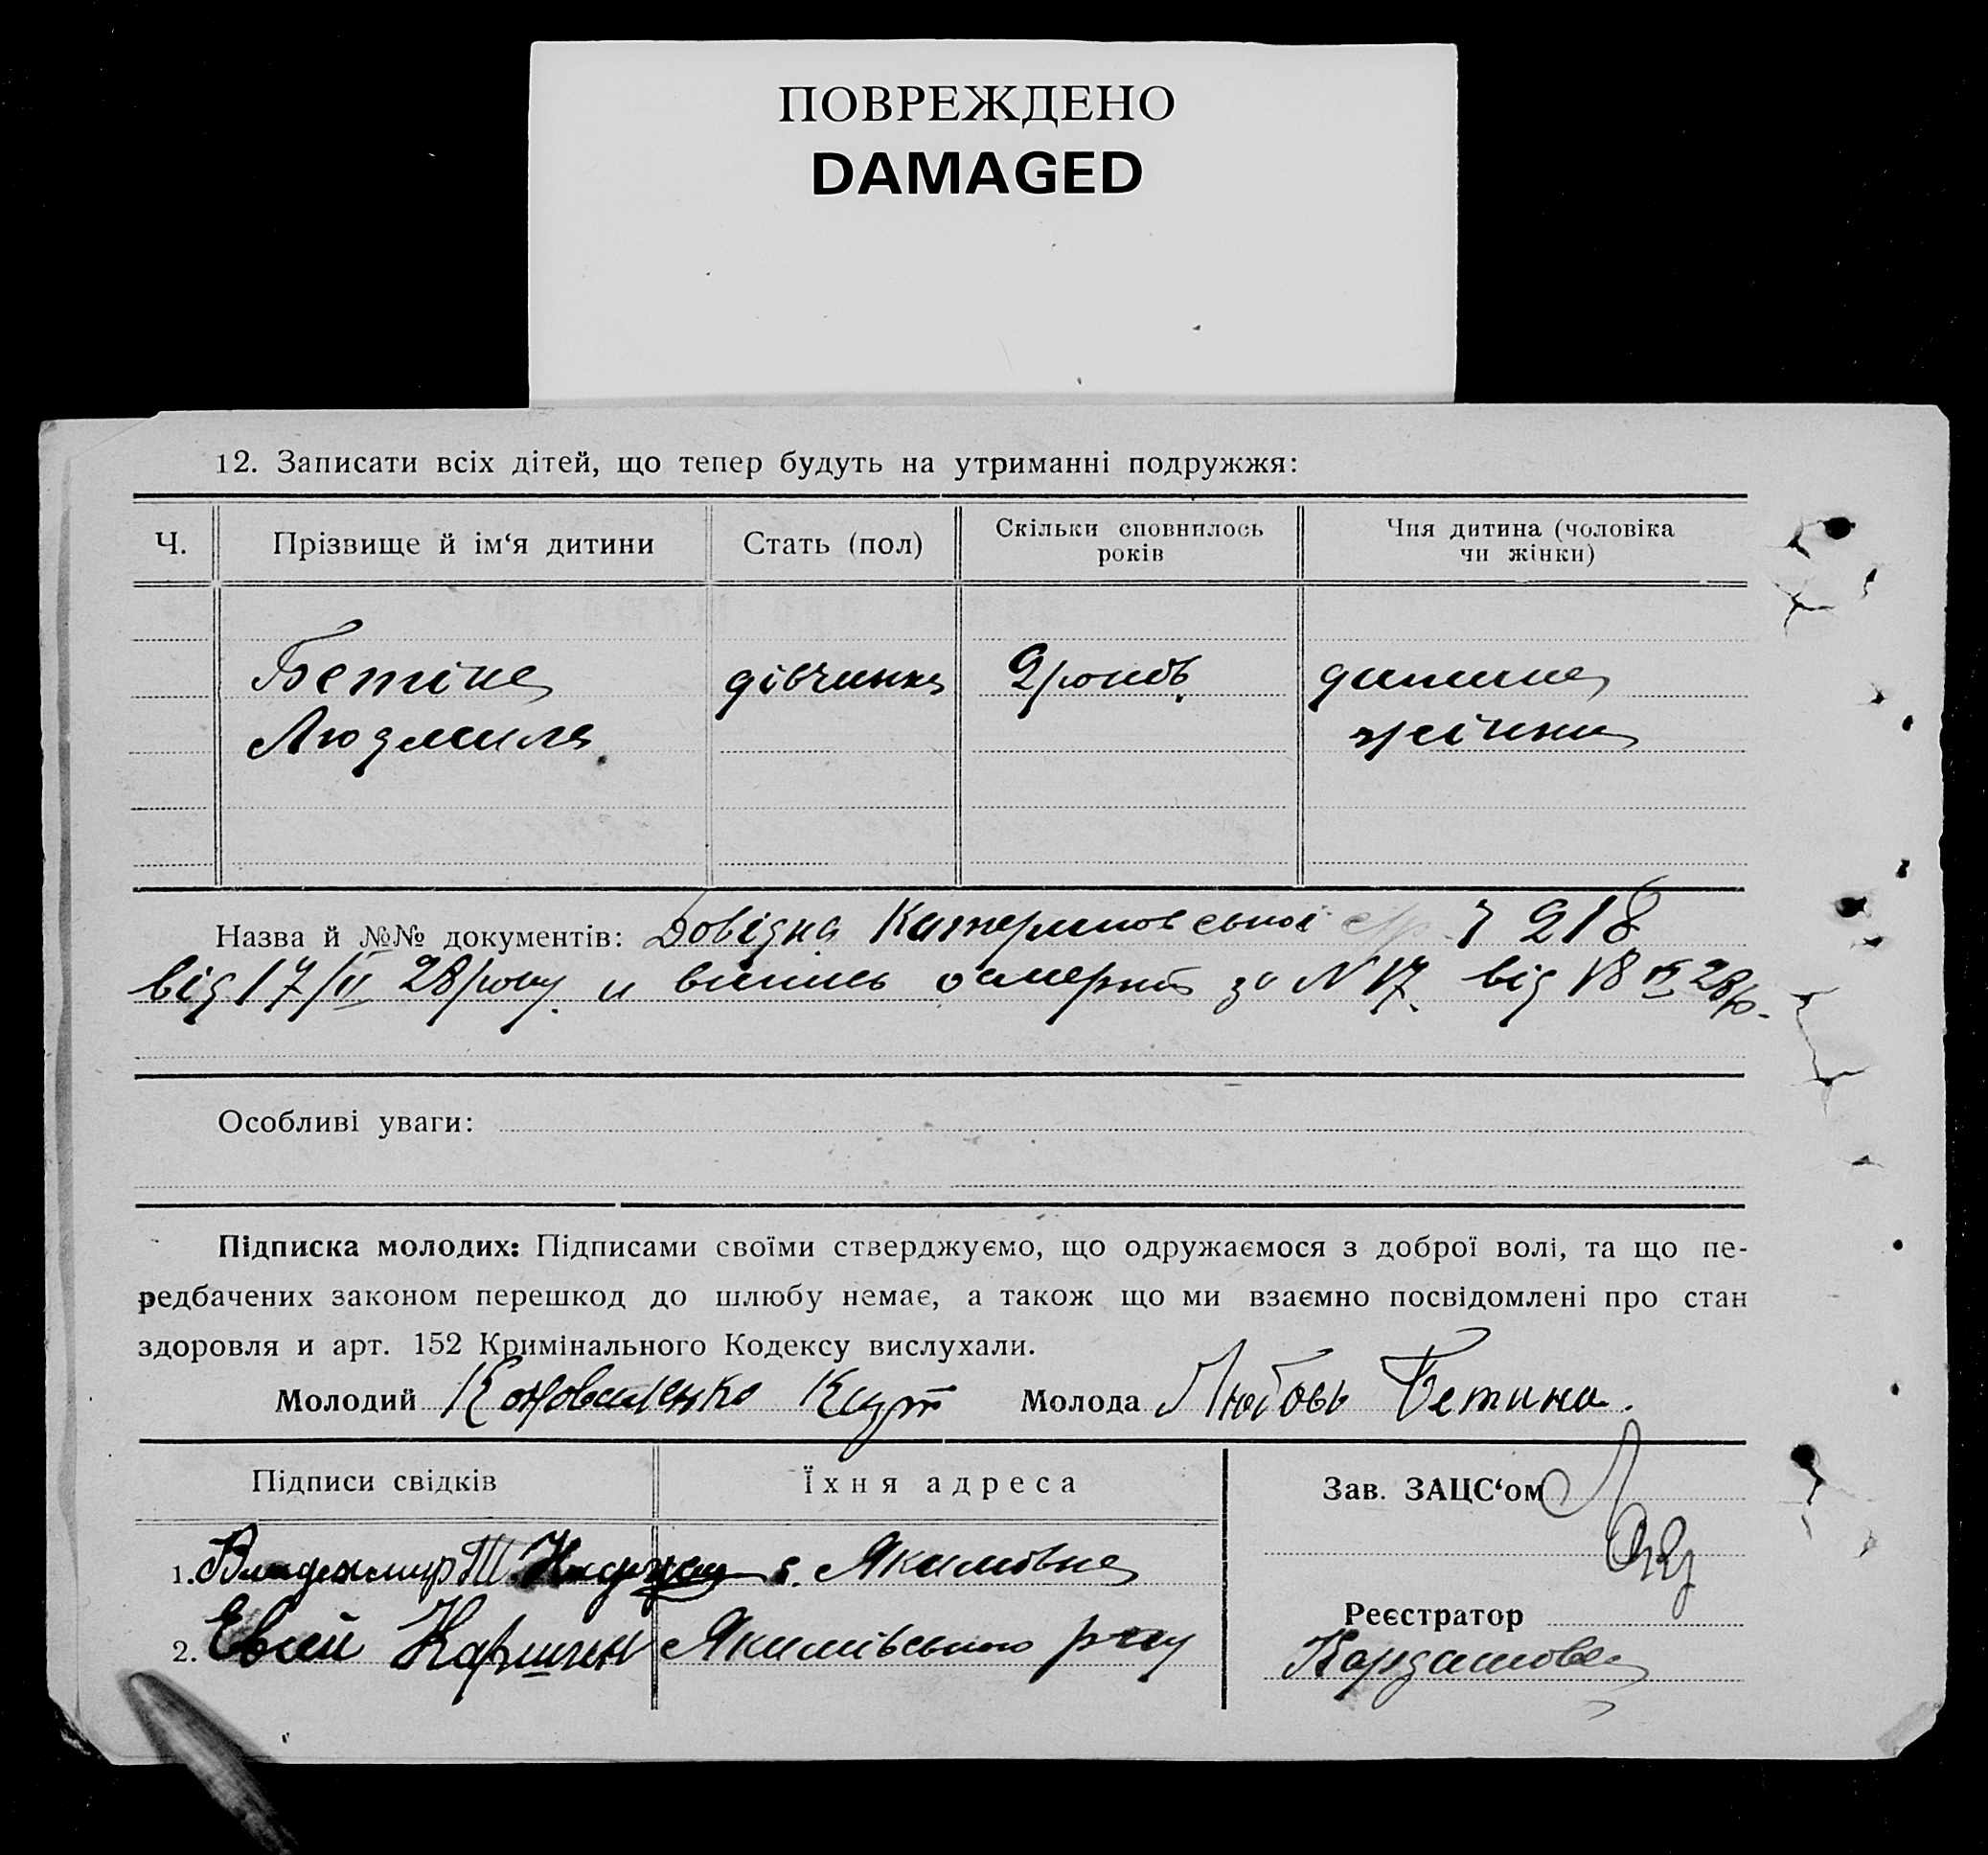 ПОВРЕЖДЕНО
DAMAGED
12. Записати всіх дітей, що тепер будуть на утриманні подружжя:
Ч. Прізвище й ім‘я дитини Стать (пол) Скільки сповнилось років Чия дитина (чоловіка чи жінки)
Бетіна дівчинка 2 років дитина
Людмила жінки
Назва й №№ документів: Довідка Катериновської 218
від 17/II 28 року и випись о смерти за N 17 від 18 28 р.
Особливі уваги:
Підписка молодих: Підписами своїми стверджуємо, що одружаємося з доброї волі, та що пе-
редбачених законом перешкод до шлюбу немає, а також що ми взаємно посвідомлені про стан
здоровля и арт. 152 Кримінального Кодексу вислухали.
Молодий Коноваленко Молода Любовь Бетина.
Підписи свідків Їхня адреса Зав. ЗАЦС‘ом
1. Владимир с. Якимовка
Реєстратор
2. Якимівського р-ну